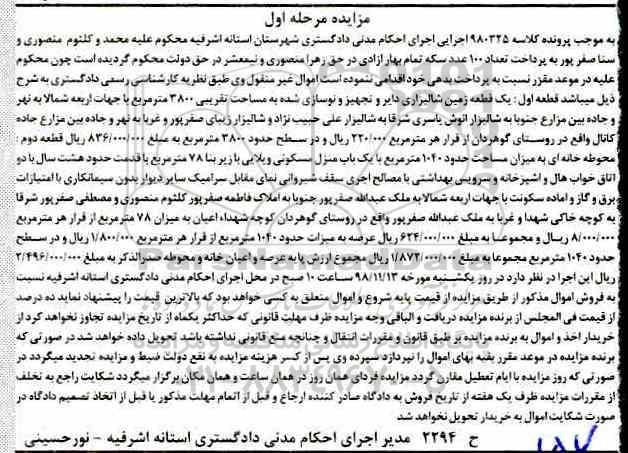 مزایده مرحله اول
به موجب پرونده کلاسه ۹۸۰۳۲۵ اجرایی اجرای احکام مدنی دادگستری شهرستان استانه اشرفیه محکوم علیه محمد و کلثوم منصوری و
سنا صفر پور به پرداخت تعداد ۱۰۰ عدد سکه تمام بهار ازادی در حق زهرا منصوری و نیمعشر در حق دولت محکوم گردیده است چون محکوم
علیه در موعد مقرر نسبت به پرداخت بدهی خود اقدامی ننموده است اموال غیر منقول وی طبق نظریه کارشناسی رسمی دادگستری به شرح
ذیل میباشد قطعه اول : یک قطعه زمین شالیزاری دایر و تجهیز و نوسازی شده به مساحت تقریبی ۳۸۰۰ مترمربع با جهات اربعه شمالا به نهر
و جاده بین مزارع جنوبا به شالیزار انوش یاسری شرقا به شالیزار علی حبیب نژاد و شالیزار زیبای صفرپور و غربا به نهر و جاده بین مزارع جاده
کانال واقع در روستای گوهردان از قرار هر مترمربع ۲۲۰/۰۰۰ ریال و در سطح حدود ۳۸۰۰ مترمربع به مبلغ ۸۳۶/۰۰۰/۰۰۰ ریال قطعه دوم :
محوطه خانه ای به میزان مساحت حدود ۱۰۴۰ مترمربع با یک باب منزل مسکونی ویلایی با زیر بنا ۷۸ مترمربع با قدمت حدود هشت سال با دو
اتاق خواب هال و اشپزخانه و سرویس بهداشتی با مصالح اجری سقف شیروانی نمای مقابل سرامیک سایر دیوار بدون سیمانکاری با امتیازات
برق و گاز و اماده سکونت با جهات اربعه شمالا به ملک عبدالله صفر پور جنوبا به املاک فاطمه صفر پور کلثوم منصوری و مصطفی صفر پور شرقا
به کوچه خاکی شهدا و غربا به ملک عبدالله صفرپور واقع در روستای گوهردان کوچه شهداء اعیان به میزان ۷۸ مترمربع از قرار هر مترمربع
۸/۰۰۰/۰۰۰ ریال و مجموعا به مبلغ ۶۲۴/۰۰۰/۰۰۰ ریال عرصه به میزات حدود ۱۰۴۰ مترمربع از قرار هر مترمربع ۱/۸۰۰/۰۰۰ ریال و در سطح
حدود ۱۰۴۰ مترمربع مجموعا به مبلغ ۱/۸۷۲/۰۰۰/۰۰۰ ریال مجموع ارزش پایه عرصه و اعیان خانه و محوطه صدرالذکر به مبلغ ۲/۴۹۶/۰۰۰/۰۰۰
ریال این اجرا در نظر دارد در روز یکشنبه مورخه ۹۸/۱۱/۱۳ ساعت ۱۰ صبح در محل اجرای احکام مدنی دادگستری استانه اشرفیه نسبت
به فروش اموال مذکور از طریق مزایده از قیمت پایه شروع و اموال متعلق به کسی خواهد بود که بالاترین قیمت را پیشنهاد نماید ده درصد
از قیمت فی المجلس از برنده مزایده دریافت و الباقی وجه مزایده ظرف مهلت قانونی که حداکثر یکماه از تاریخ مزایده تجاوز نخواهد کرد از
خریدار اخذ و اموال به برنده مزایده بر طبق قانون و مقررات انتقال و چنانچه منع قانونی نداشته باشد تحویل داده خواهد شد در صورتی که
برنده مزایده در موعد مقرر بقیه بهای اموال را نپردازد سپرده وی پس از کسر هزینه مزایده به نفع دولت ضبط و مزایده تجدید میگردد در
صورتی که روز مزایده با ایام تعطیل مقارن گردد مزایده فردای همان روز در همان ساعت و همان مکان برگزار میگردد شکایت راجع به تخلف
از مقررات مزایده ظرف یک هفته از تاریخ فروش به دادگاه صادر کننده ارجاع و قبل از اتمام مهلت مذکور یا قبل از اتخاذ تصمیم دادگاه در
صورت شکایت اموال به خریدار تحویل نخواهد شد
ح ۲۲۹۴ مدیر اجرای احکام مدنی دادگستری استانه اشرفیه - نورحسینی